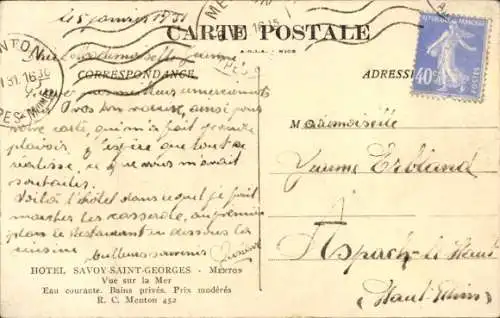 le 5 janvier 1931
MENTON
16 15
CARTE POSTALE
RÉPUBLIQUE FRANÇAISE
40c
MENTON
1 31. 16 30
Mademoiselle Yvonne
CORRESPONDANCE
ADRESSE
meilleurs remerciements
à vos bon voeux, ainsi pour
votre carte, qui m'a fait grande
plaisir, j'espère que tout se
réalise, ce que vous m'avait
souhaitée.
Voilà l'hôtel dans lequel je fait
marcher les casserole, au premier
plan le Restaurant en dessous la
cuisine
Meilleurs souvenirs
Mademoiselle
Yvonne Erbland
à
Aspach-le-Haut
(Haut-Rhin)
HOTEL SAVOY-SAINT-GEORGES - MENTON
Vue sur la Mer
Eau courante. Bains privés. Prix modérés
R. C. Menton 452